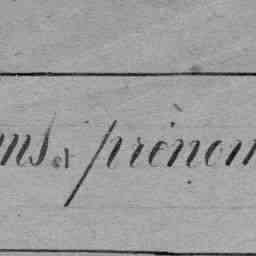 ms et prènom